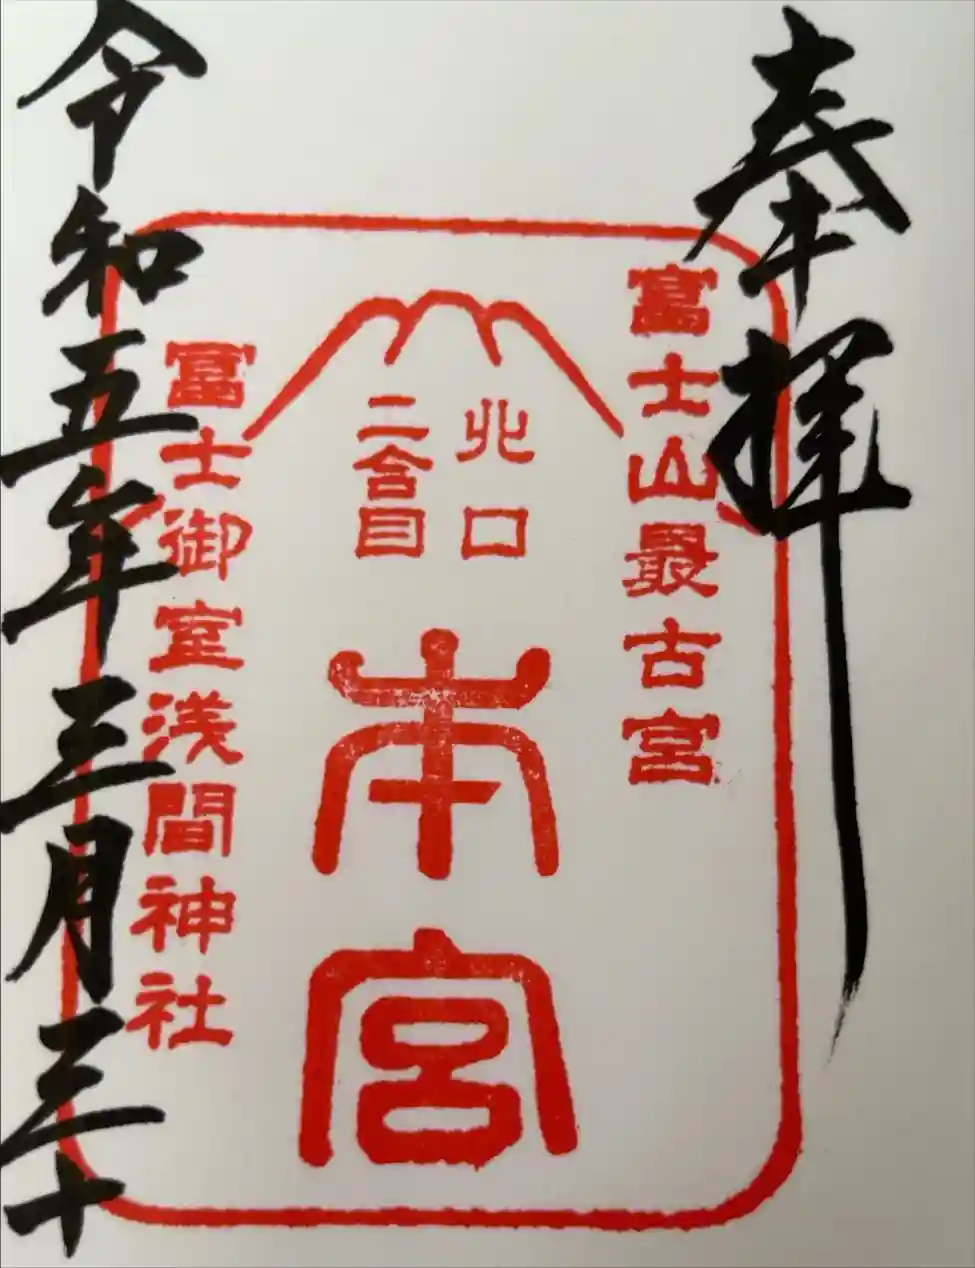 奉拝
富士山最古宮
北口
二合目
本宮
冨士御室浅間神社
令和五年三月三十